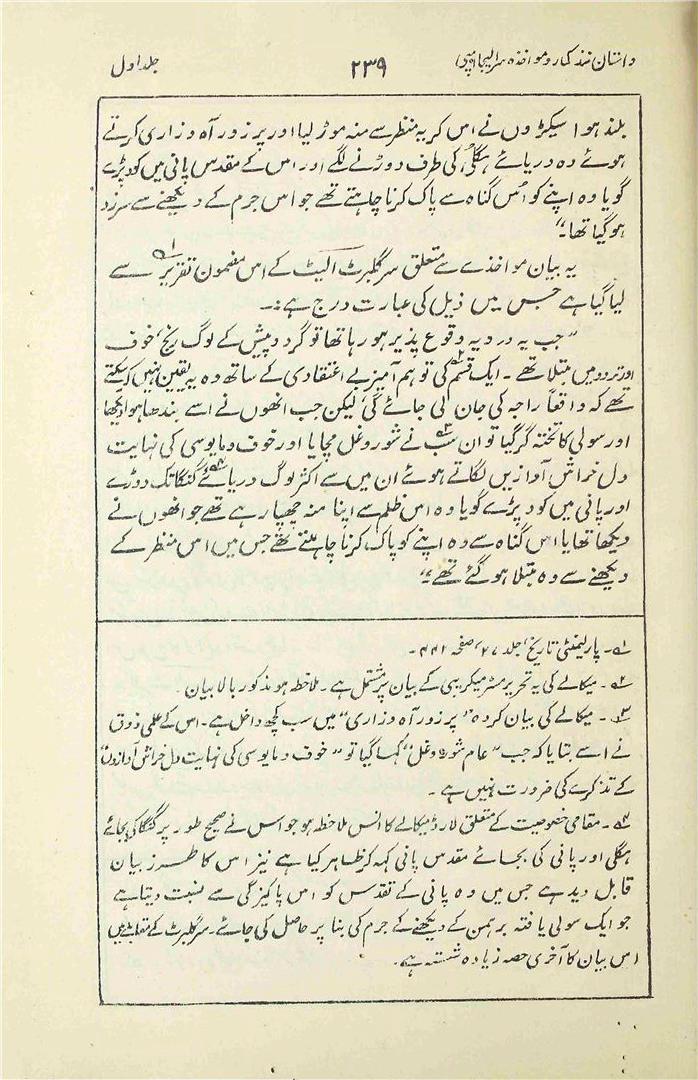 داستان نند کمار و مواخذہ سر ایلیجا امپی
۲۳۹
جلد اول
بلند ہوا سیکڑوں نے اس کریہ منظر سے منہ موڑ لیا اور پر زور آہ و زاری کرتے
ہوئے وہ دریائے ہگلی کی طرف دوڑنے لگے اور اس کے مقدس پانی میں کود پڑے
گویا وہ اپنے کو اُس گناہ سے پاک کرنا چاہتے تھے جو اس جرم کے دیکھنے سے سرزد
ہو گیا تھا۔"
یہ بیان مواخذے سے متعلق سر گلبرٹ الیٹ کے اس مضمون تقریر سے
لیا گیا ہے جس میں ذیل کی عبارت درج ہے:۔
"جب یہ درد یہ وقوع پذیر ہو رہا تھا تو گرد و پیش کے لوگ رنج، خوف
اور تردد میں مبتلا تھے ۔ ایک قسم کی توہم آمیز بے اعتقادی کے ساتھ وہ یہ یقین نہیں کر سکتے
تھے کہ واقعاً راجہ کی جان لی جائے گی، لیکن جب انھوں نے اسے بندھا ہوا دیکھا
اور سولی کا تختہ گر گیا تو ان سب نے شور و غل مچایا اور خوف و مایوسی کی نہایت
دل خراش آوازیں لگاتے ہوئے ان میں سے اکثر لوگ دریائے گنگا تک دوڑے
اور پانی میں کود پڑے گویا وہ اس ظلم سے اپنا منہ چھپا رہے تھے جو انھوں نے
دیکھا تھا یا اس گناہ سے وہ اپنے کو پاک، کرنا چاہتے تھے جس میں اس منظر کے
دیکھنے سے وہ مبتلا ہو گئے تھے۔"
۱ھ ۔ پارلیمنٹی تاریخ، جلد ۲۷، صفحہ ۴۴۲ ۔
۲ھ ۔ میکالے کی یہ تحریر مسٹر میکریبی کے بیان پر مشتمل ہے ۔ ملاخطہ ہو مذکور بالا بیان
۳ھ ۔ میکالے کی بیان کردہ "پر زور آہ و زاری" میں سب کچھ داخل ہے ۔ اس کے علمی ذوق
نے اسے بتایا کہ جب "عام شور و غل" کہا گیا تو "خوف و مایوسی کی نہایت دل خراش آوازوں"
کے تذکرے کی ضرورت نہیں ہے ۔
۴ھ ۔ مقامی خصوصیت کے متعلق لارڈ میکالے کا انس ملاخطہ ہو جو اس نے صحیح طور پر گنگا کی بجائے
ہگلی اور پانی کی بجائے مقدس پانی کہہ کر ظاہر کیا ہے نیز اس کا طرز بیان
قابل دید ہے جس میں وہ پانی کے تقدس کو اس پاکیزگی سے نسبت دیتا ہے
جو ایک سولی یافتہ برہمن کے دیکھنے کے جرم کی بنا پر حاصل کی جائے ۔ سر گلبرٹ کے مقابلے میں
اس بیان کا آخری حصہ زیادہ شستہ ہے ۔